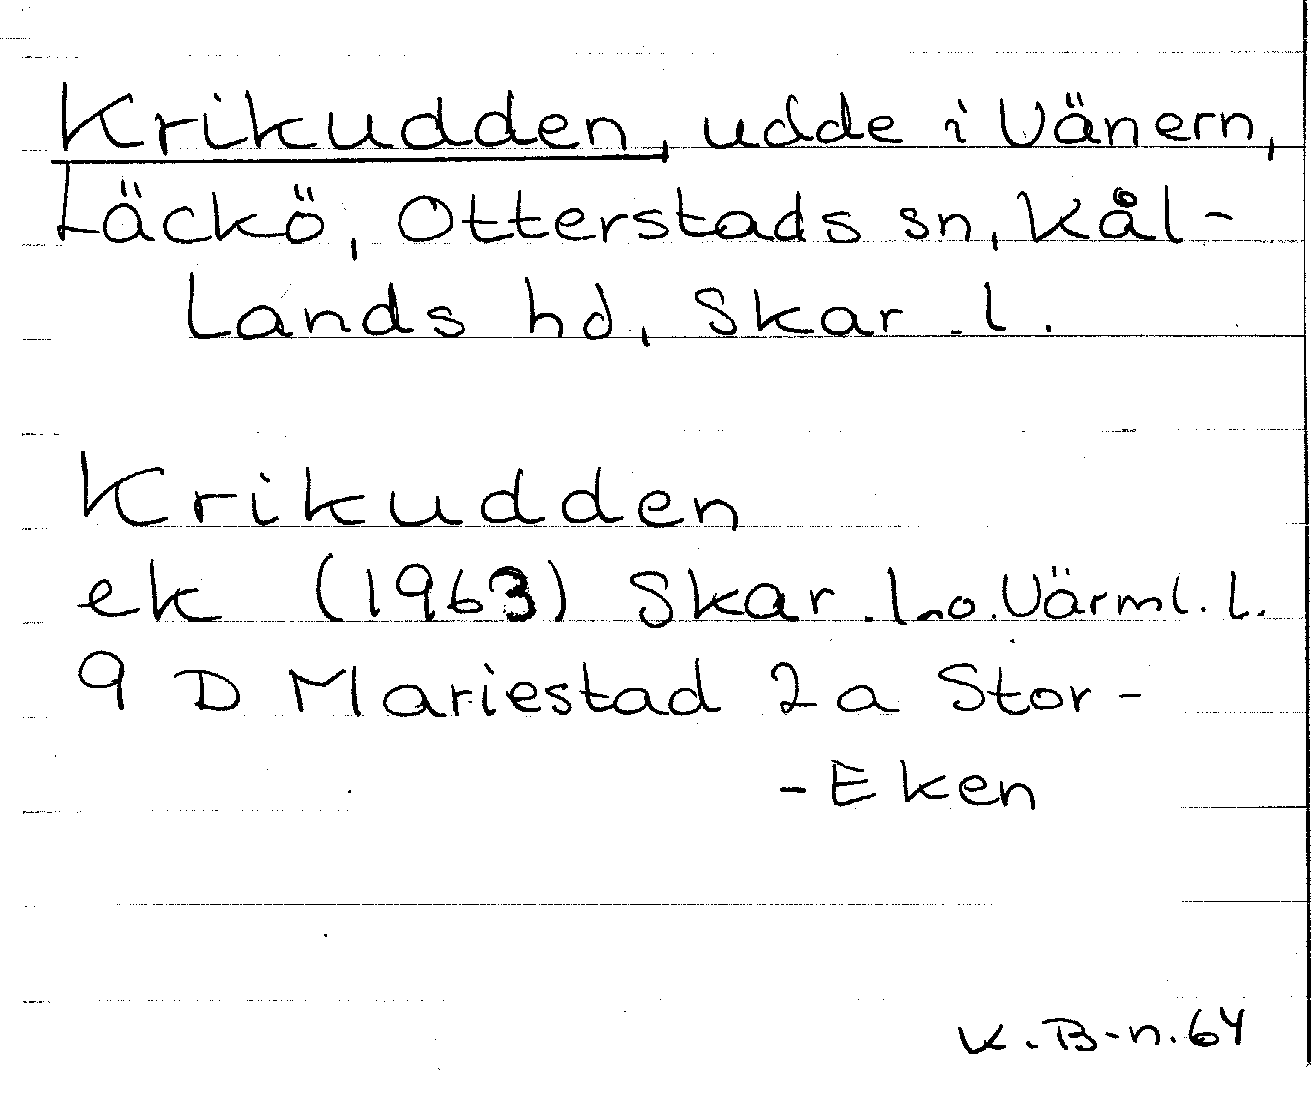 Krikudden, udde i Vänern,
Läckö, Otterstads sn, Kål-
lands hd, Skar. l.
Krikudden
ek (1963) Skar. l. o. Värml. l.
9 D Mariestad 2a Stor-
-Eken
K. B-n. 64